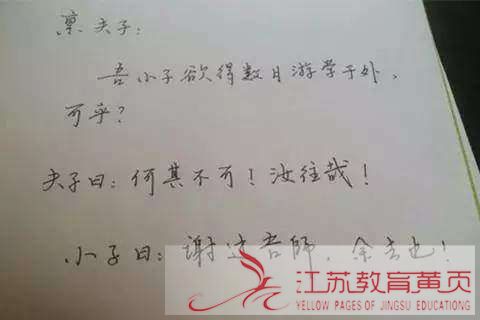 禀夫子：
吾小子欲得数日游学于外，
可乎？
夫子曰：何其不可！汝往哉！
小子曰：谢过吾師，余去也！
江苏教育黄页
YELLOW PAGES OF JINGSU EDUCATIONG